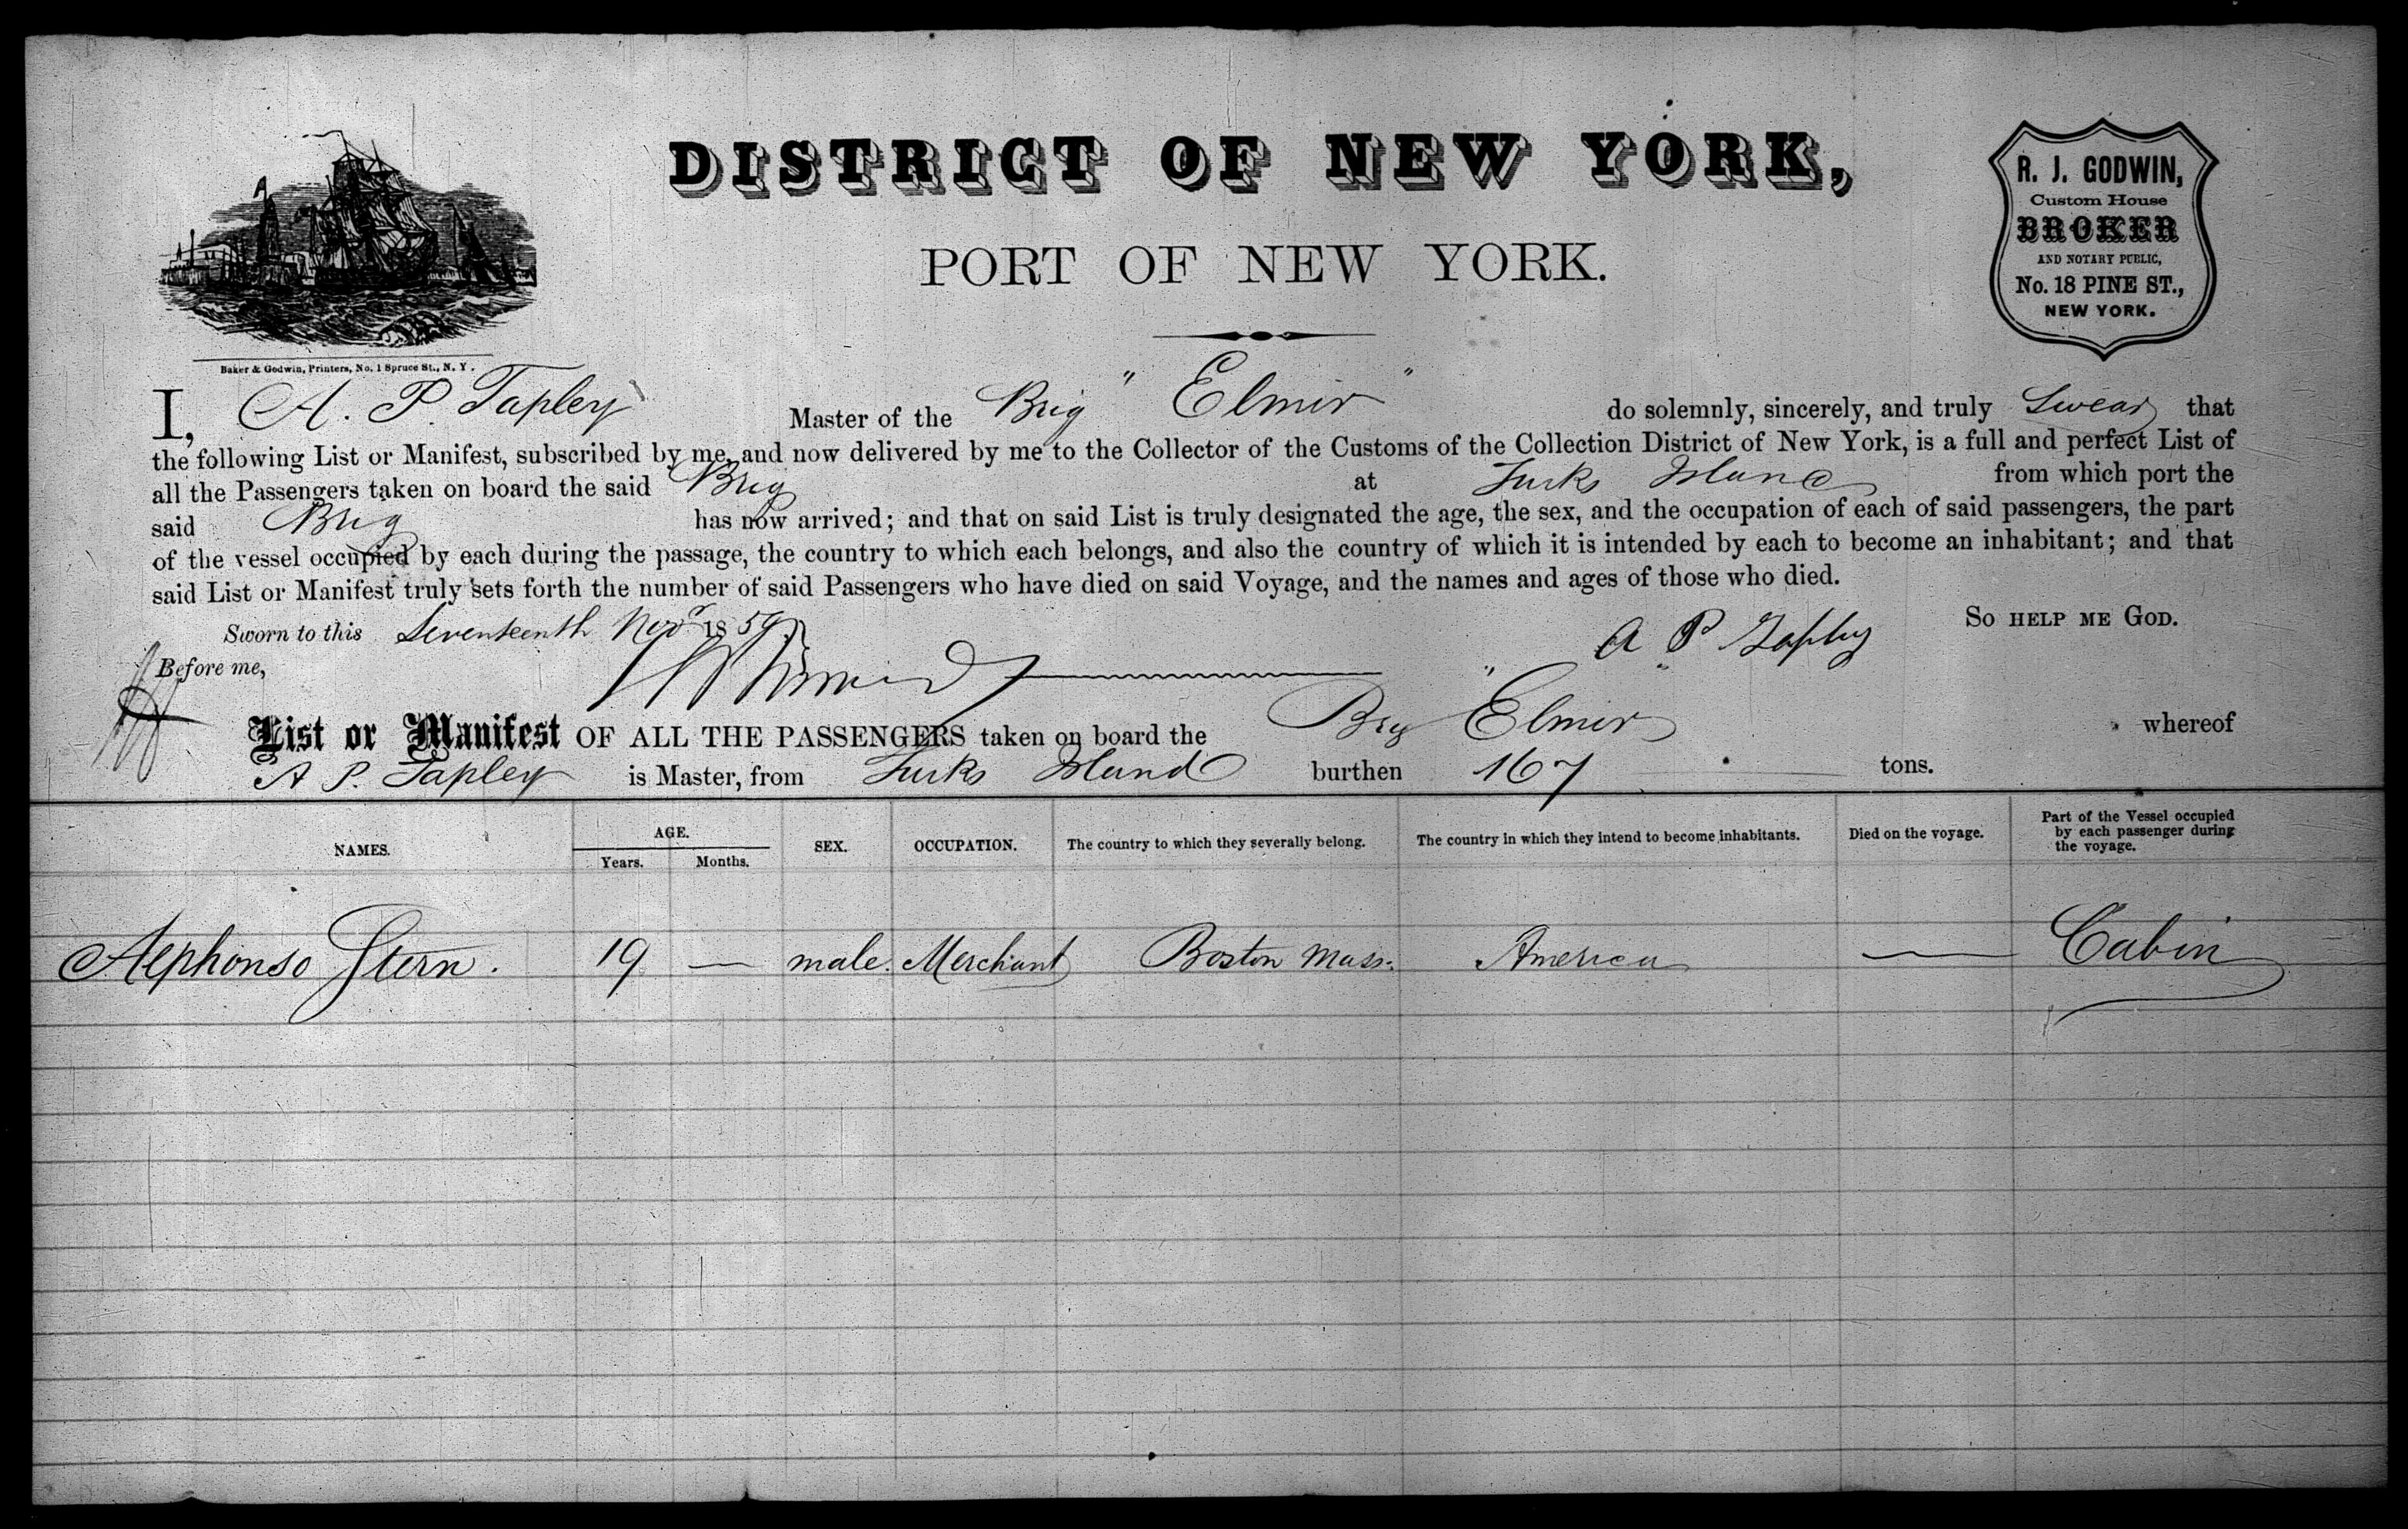 DISTRICT OF NEW YORK,
PORT OF NEW YORK.
R. J. GODWIN,
Custom House
BROKER
AND NOTARY PUBLIC,
No. 18 PINE ST.,
NEW YORK.
Baker & Godwin, Printers, No. 1 Spruce St., N. Y.
I, A. P. Tapley Master of the Brig "Elmir" do solemnly, sincerely, and truly Swear that
the following List or Manifest, subscribed by me, and now delivered by me to the Collector of the Customs of the Collection District of New York, is a full and perfect List of
all the Passengers taken on board the said Brig at Turks Island from which port the
said Brig has now arrived; and that on said List is truly designated the age, the sex, and the occupation of each of said passengers, the part
of the vessel occupied by each during the passage, the country to which each belongs, and also the country of which it is intended by each to become an inhabitant; and that
said List or Manifest truly sets forth the number of said Passengers who have died on said Voyage, and the names and ages of those who died.
Sworn to this Seventeenth Novr 1859. A P Tapley So HELP ME GOD.
Before me,
List or Manifest OF ALL THE PASSENGERS taken on board the Brig "Elmir whereof
A P. Tapley is Master, from Turks Island burthen 167 tons.
NAMES. AGE. Years. Months. SEX. OCCUPATION. The country to which they severally belong. The country in which they intend to become inhabitants. Died on the voyage. Part of the Vessel occupied by each passenger during the voyage.
Alphonso Stern. 19 — male. Merchant Boston Mass. America — Cabin